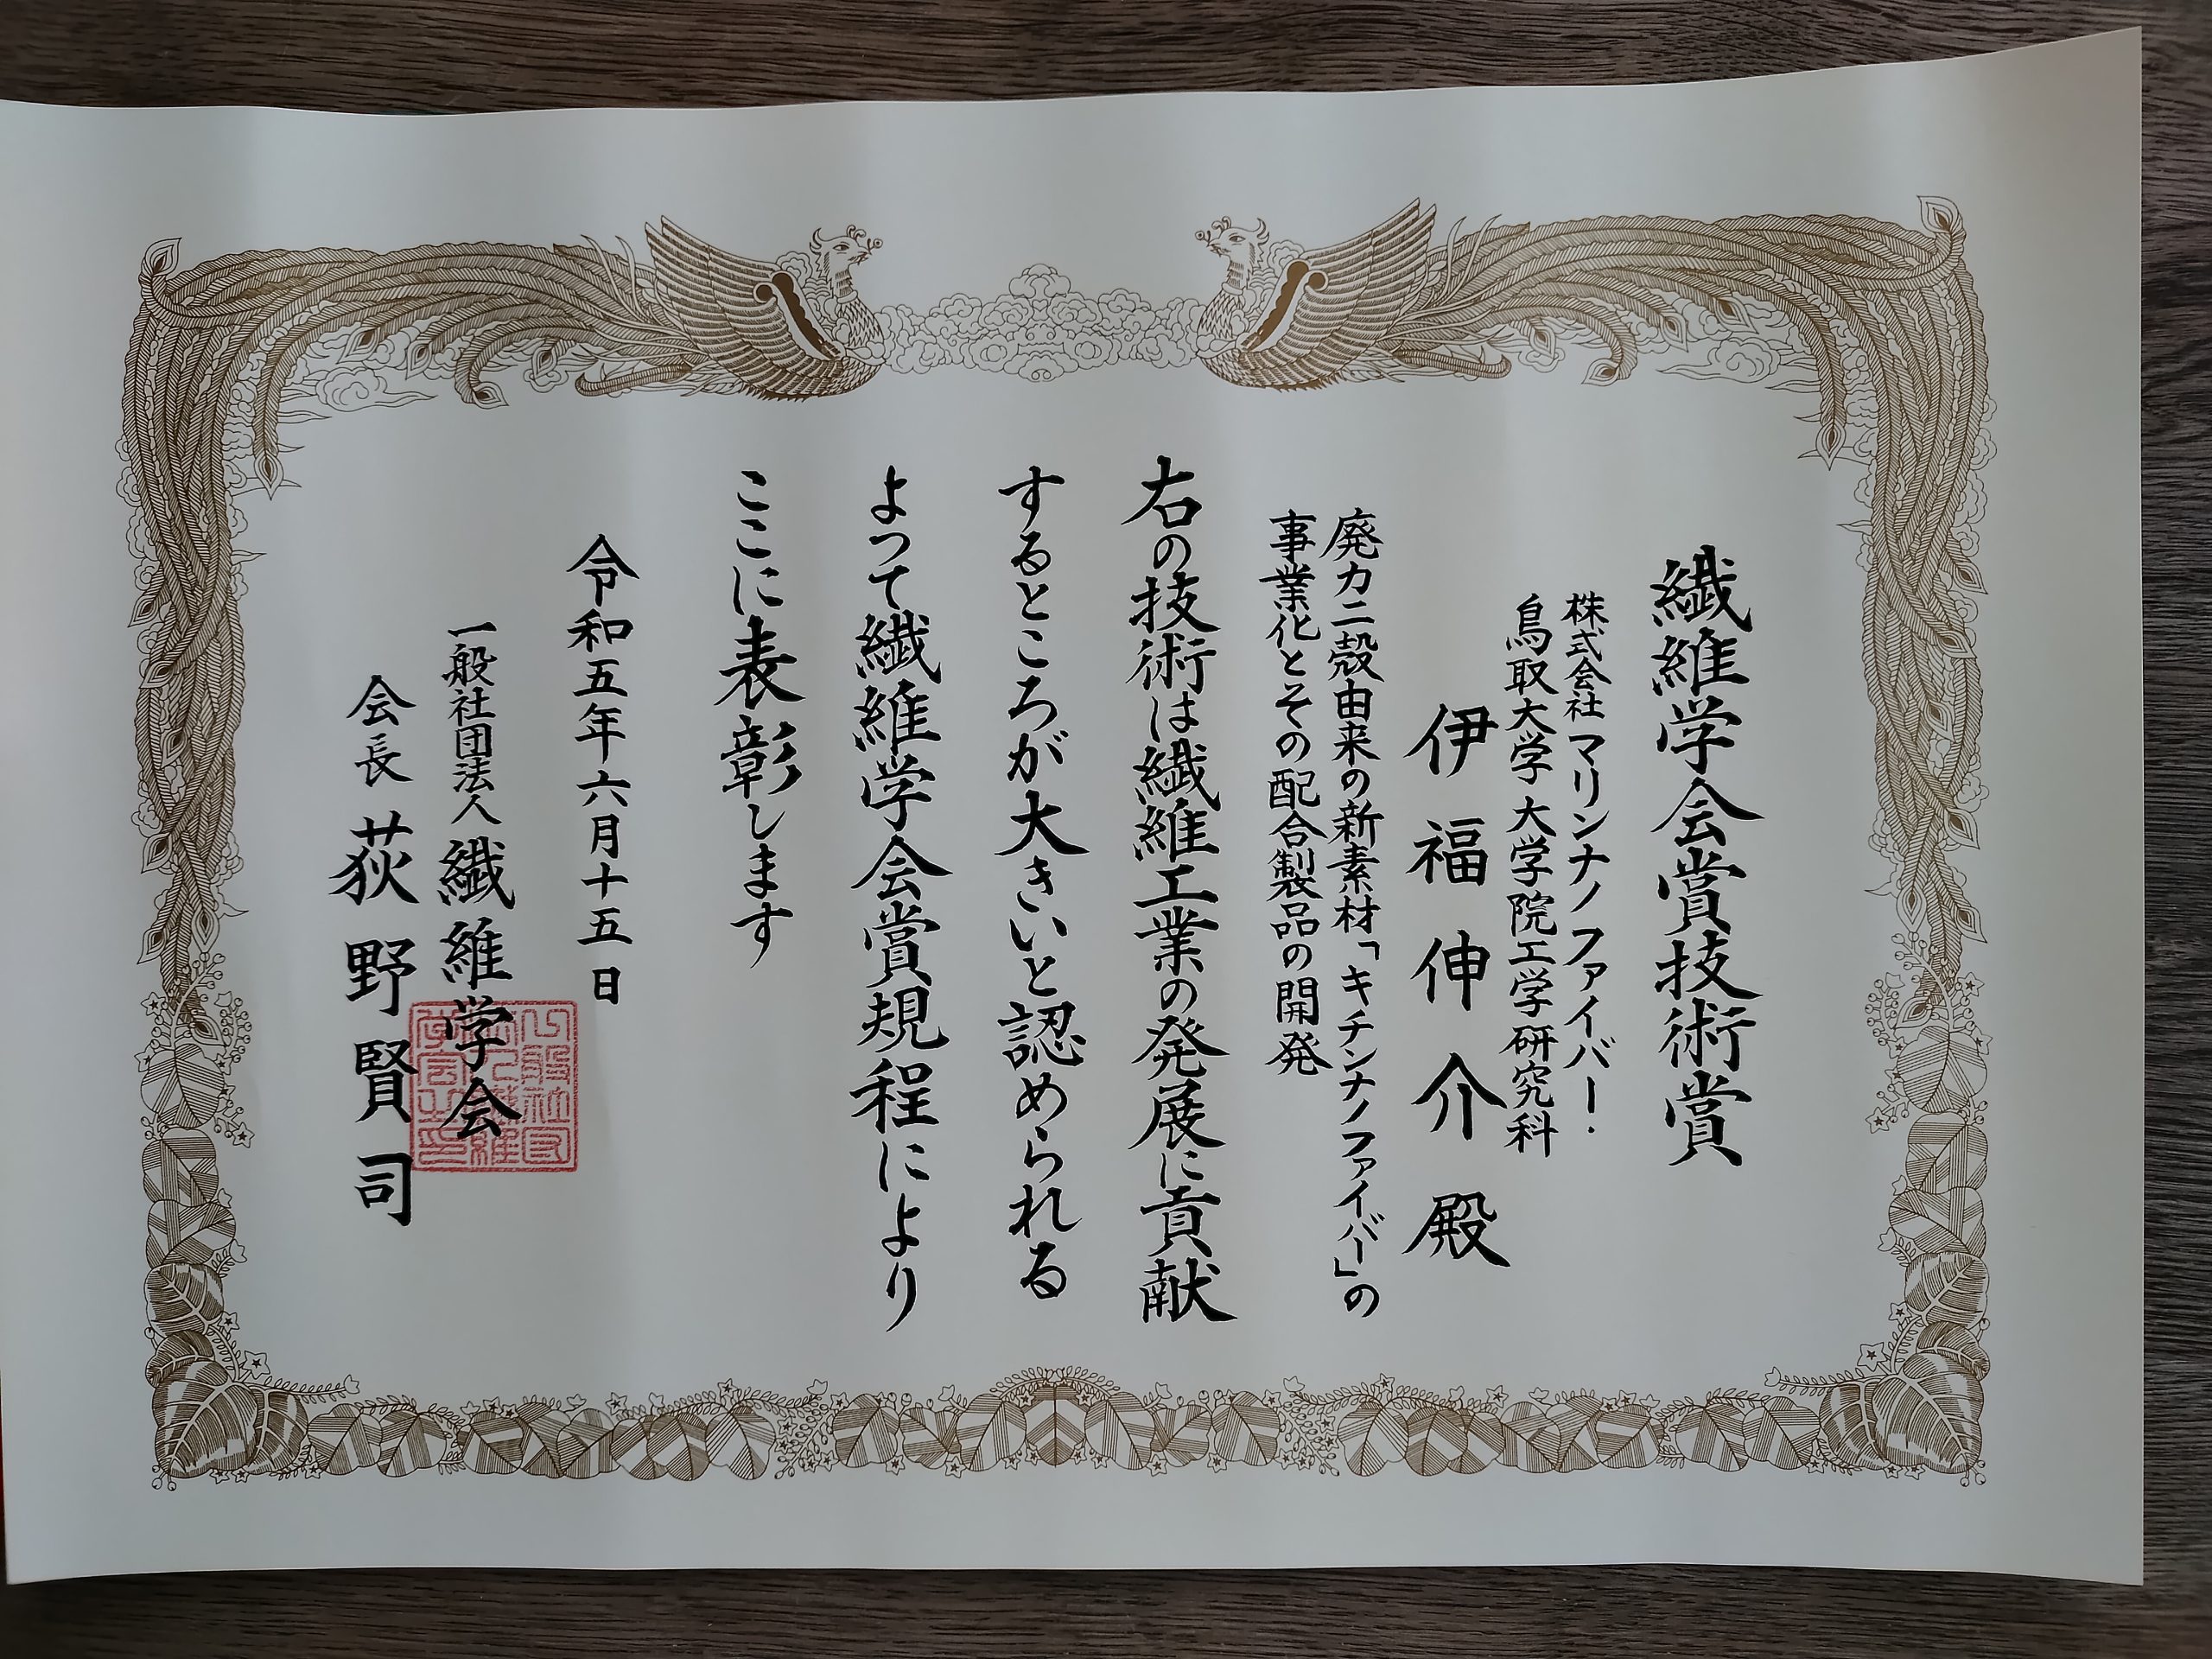 繊維学会賞技術賞
株式会社マリンナノファイバー・
鳥取大学大学院工学研究科
伊福伸介殿
廃カニ殻由来の新素材「キチンナノファイバー」の
事業化とその配合製品の開発
右の技術は繊維工業の発展に貢献
するところが大きいと認められる
よって繊維学会賞規程により
ここに表彰します
令和五年六月十五日
一般社団法人繊維学会
会長荻野賢司